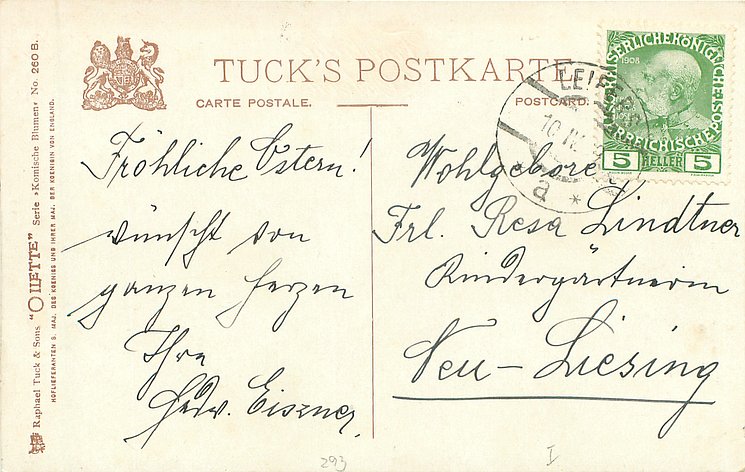 TUCK'S POSTKARTE
CARTE POSTALE.
POSTCARD.
Raphael Tuck & Sons "OILETTE" Serie »Komische Blumen« No. 260 B.
HOFLIEFERANTEN S. MAJ. DES KOENIGS UND IHRER MAJ. DER KOENIGIN VON ENGLAND.
Fröhliche Ostern!
wünscht von
ganzen Herzen
Ihre
Hedw. Eiszner
Wohlgeboren
Frl. Resa Lindtner
Kindergärtnerin
Neu-Liesing
1908
5 HELLER 5
10 IV
a
293
I